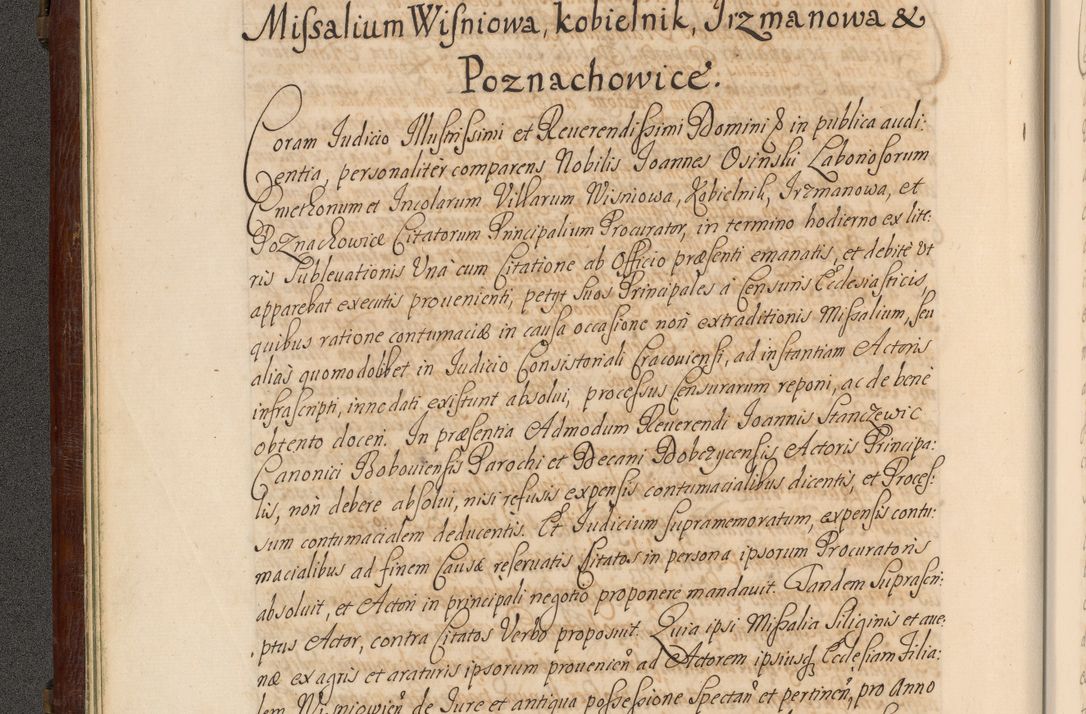 Miſsalium Wiſniowa, kobielnik, Jrzmanowa &
Poznachowice.
Coram Judicio Illuſtriſsimi et Reuerendiſsimi Domini & in publica audi:
entia, personaliter comparens Nobilis Joannes Osinski Laborioſorum
Cmethonum et Incolarum Villarum Wiſniowa, Kobielnik, Jrzmanowa, et
Poznachowice Citatorum Principalium Procurator, in termino hodierno ex lite:
ris Subleuationis Una cum Citatione ab Officio præsenti emanatis, et debite ut
apparebat executis prouenienti, petyt suos Principales á Censuris Ecclesiasticis,
quibus ratione contumaciæ in cauſa occaſione non extraditionis Miſsalium, ſeu
alias quomodolibet in Judicio Consistoriali Cracouiensi, ad inſtantiam Actoris
infraſcripti, innodati exiſtunt absolui, proceſsus Censurarum reponi, ac de bene
obtento doceri. In præsentia Admodum Reuerendi Joannis Stanczewic
Canonici Bobouiensis Parochi et Decani Dobczycensis Actoris Principa:
lis, non debere absolui, nisi refusis expensis contumacialibus dicentis, et Proceſ:
sum contumacialem deducentis. Et Judicium supramemoratum, expensis contu:
macialibus ad finem Cauſæ reſeruatis Citatos in persona ipsorum Procuratoris
absoluit, et Actori in principali negotio proponere mandauit. Tandem Supraſcri:
ptus Actor, contra Citatos Verbo proposuit. Quia ipsi Miſsalia Siliginis et aue:
næ ex agris et araturis ipsorum prouenien̄ ad Actorem ipsiusq̃ Ecclesiam Filia:
lem Wiſniowien̄ de Jure et antiqua poſseſsione spectan̄ et pertinen̄, pro Anno